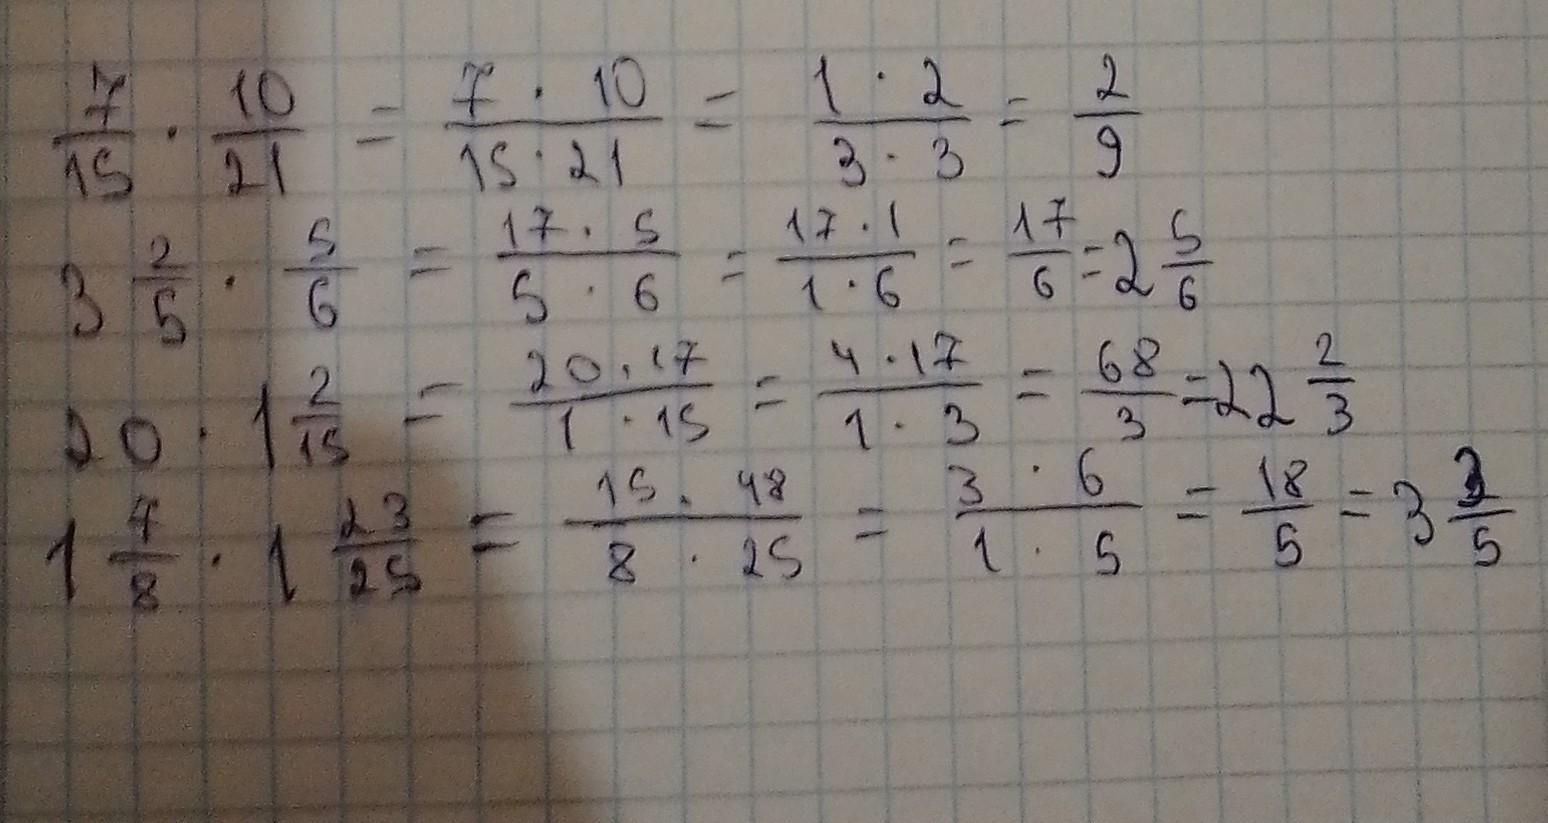 7/15 · 10/21 = 7 · 10/15 · 21 = 1 · 2/3 · 3 = 2/9
3 2/5 · 5/6 = 17 · 5/5 · 6 = 17 · 1/1 · 6 = 17/6 = 2 5/6
20 · 1 2/15 = 20 · 17/1 · 15 = 4 · 17/1 · 3 = 68/3 = 22 2/3
1 7/8 · 1 23/25 = 15 · 48/8 · 25 = 3 · 6/1 · 5 = 18/5 = 3 3/5